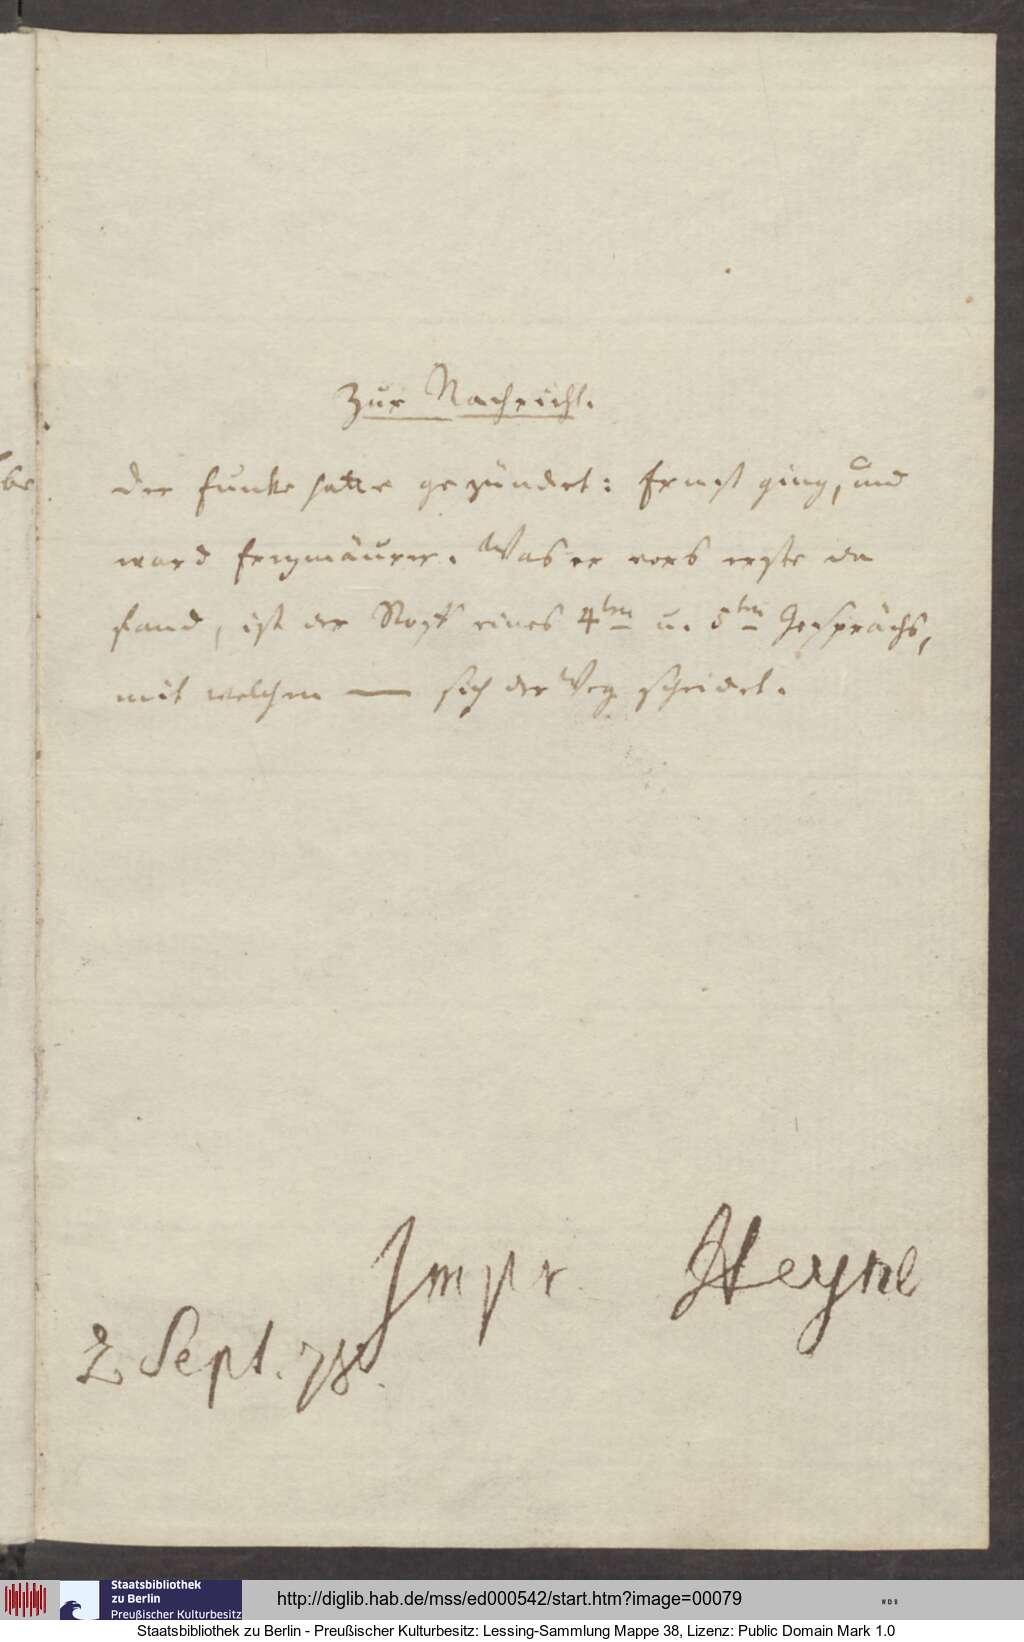 Zur Nachricht.
Der Funke hatte gezündet: Ernst ging, und
ward Freymäurer. Was er vors erste da
fand, ist der Stoff eines 4ten u. 5ten Gesprächs,
mit welchen — sich der Weg scheidet.
Impr Heyne
2 Sept. 78.
Staatsbibliothek
zu Berlin
Preußischer Kulturbesitz
http://diglib.hab.de/mss/ed000542/start.htm?image=00079
WDB
Staatsbibliothek zu Berlin - Preußischer Kulturbesitz: Lessing-Sammlung Mappe 38, Lizenz: Public Domain Mark 1.0